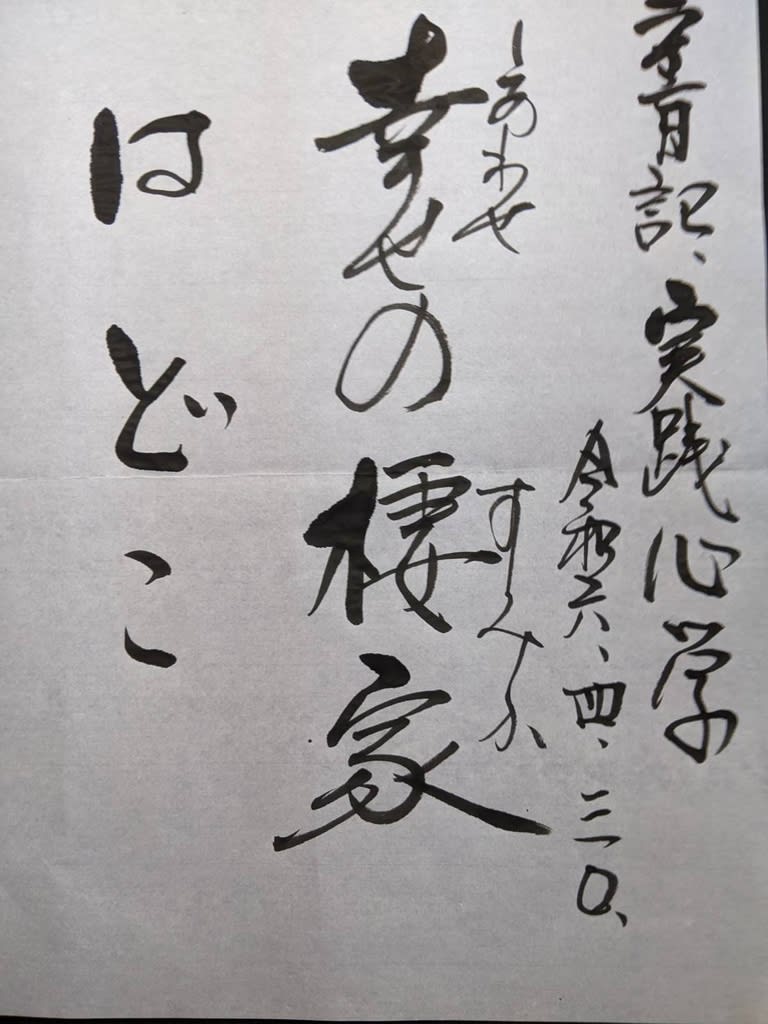 記、実践心学
令和六、四、三〇、
しあわせ
幸せの棲家
すみか
はどこ